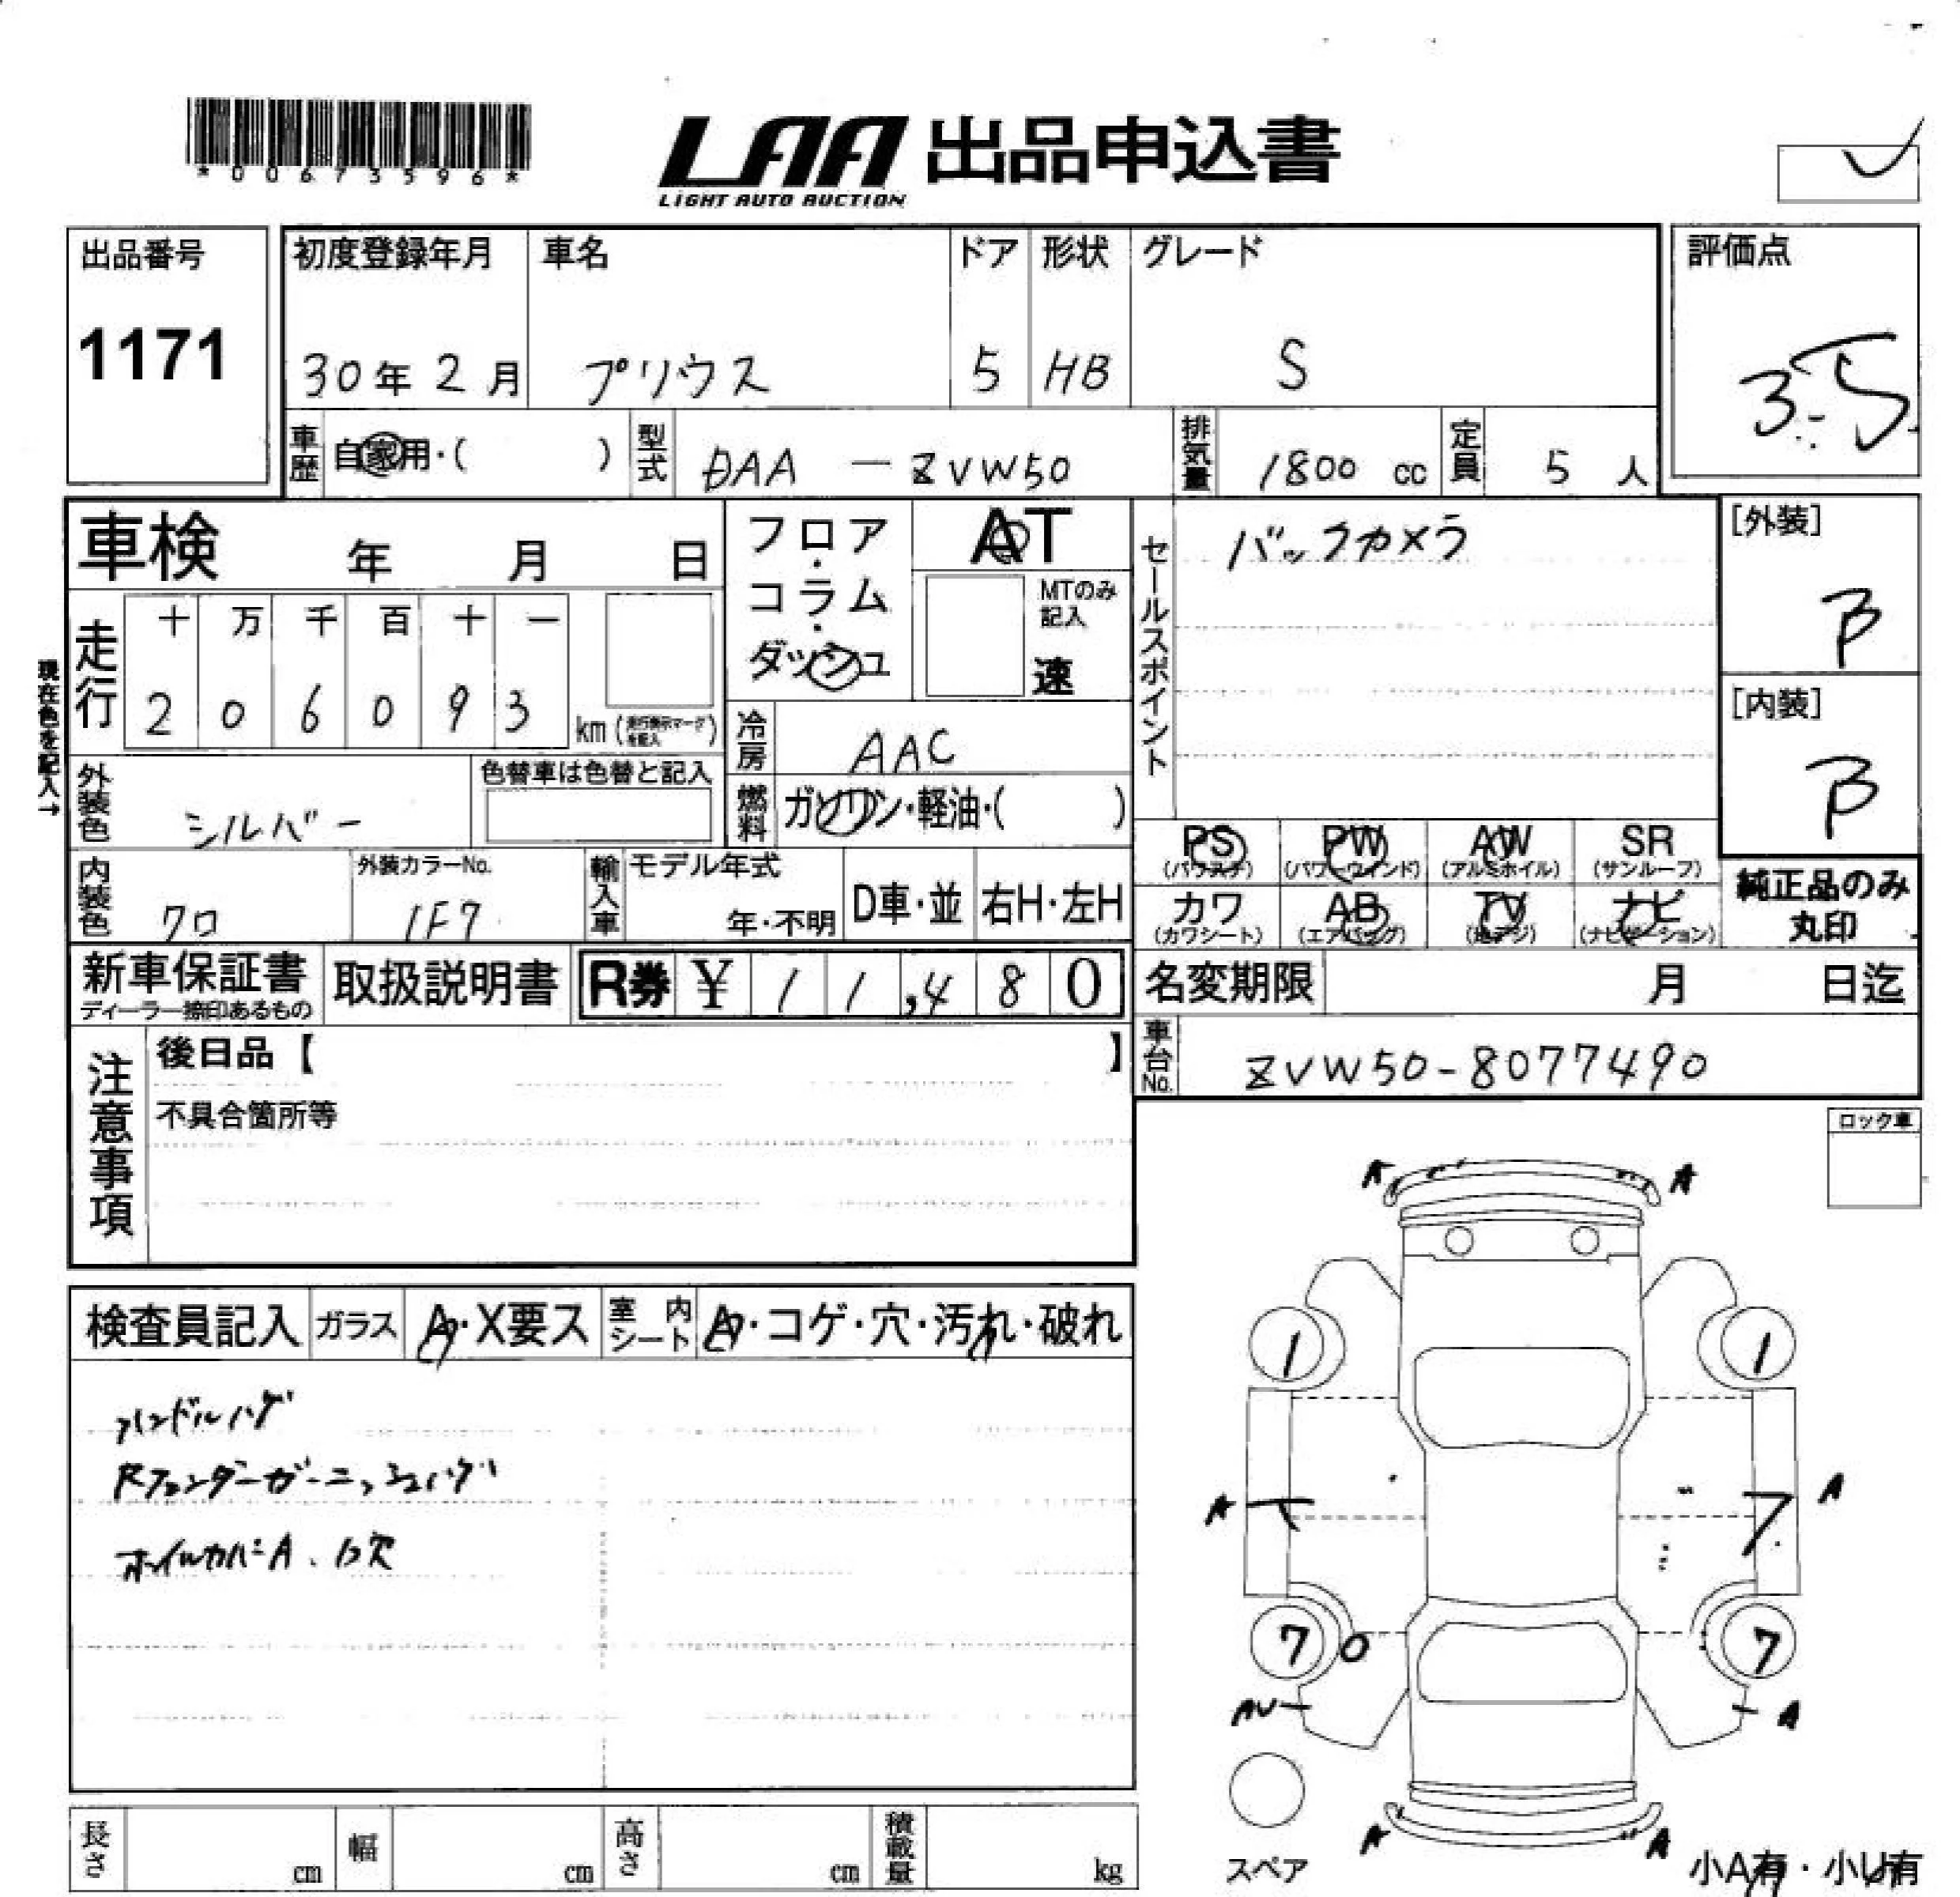 *00673596*
LAA 出品申込書
LIGHT AUTO AUCTION
出品番号
1171
初度登録年月
30年 2月
車名
プリウス
ドア
5
形状
HB
グレード
S
評価点
3.5
車歴
自家用・( )
型式
DAA - ZVW50
排気量
1800 cc
定員
5 人
車検 年 月 日
走行
十 万 千 百 十 一
2 0 6 0 9 3
km (走行表示マークを記入)
現在色を記入→
外装色
シルバー
色替車は色替と記入
内装色
クロ
外装カラーNo.
1F7
輸入車
モデル年式
年・不明
D車・並
右H・左H
フロア・コラム・ダッシュ
AT
MTのみ記入
速
冷房
AAC
燃料
ガソリン・軽油・( )
セールスポイント
バックカメラ
[外装]
B
[内装]
B
PS (パワステ)
PW (パワーウインド)
AW (アルミホイル)
SR (サンルーフ)
カワ (カワシート)
AB (エアバッグ)
TV (地デジ)
ナビ (ナビゲーション)
純正品のみ丸印
新車保証書
ディーラー捺印あるもの
取扱説明書
R券 ¥ 1 1,4 8 0
名変期限 月 日迄
車台No.
ZVW50-8077490
注意事項
後日品【 】
不具合箇所等
ロック車
検査員記入
ガラス
A・X要ス
室内シート
A・コゲ・穴・汚れ・破れ
ハンドルハゲ
Rフェンダーガーニッシュハゲ
ホイルカバーA、1コ欠
A A
1 1
A A
7 0 7
AU A
A A
スペア
小A有・小U有
長さ cm
幅 cm
高さ cm
積載量 kg